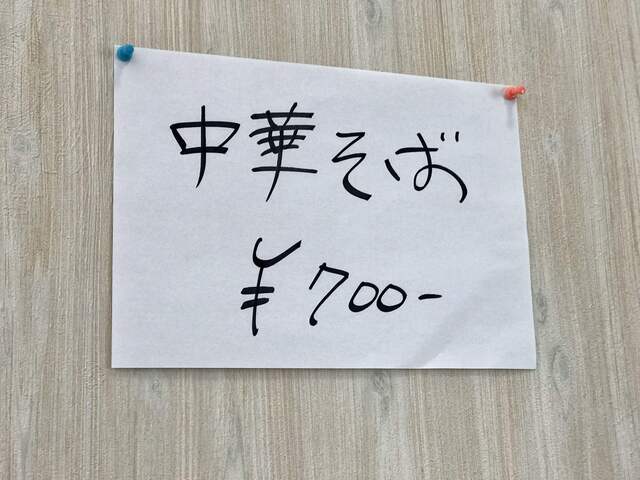 中華そば
¥700-